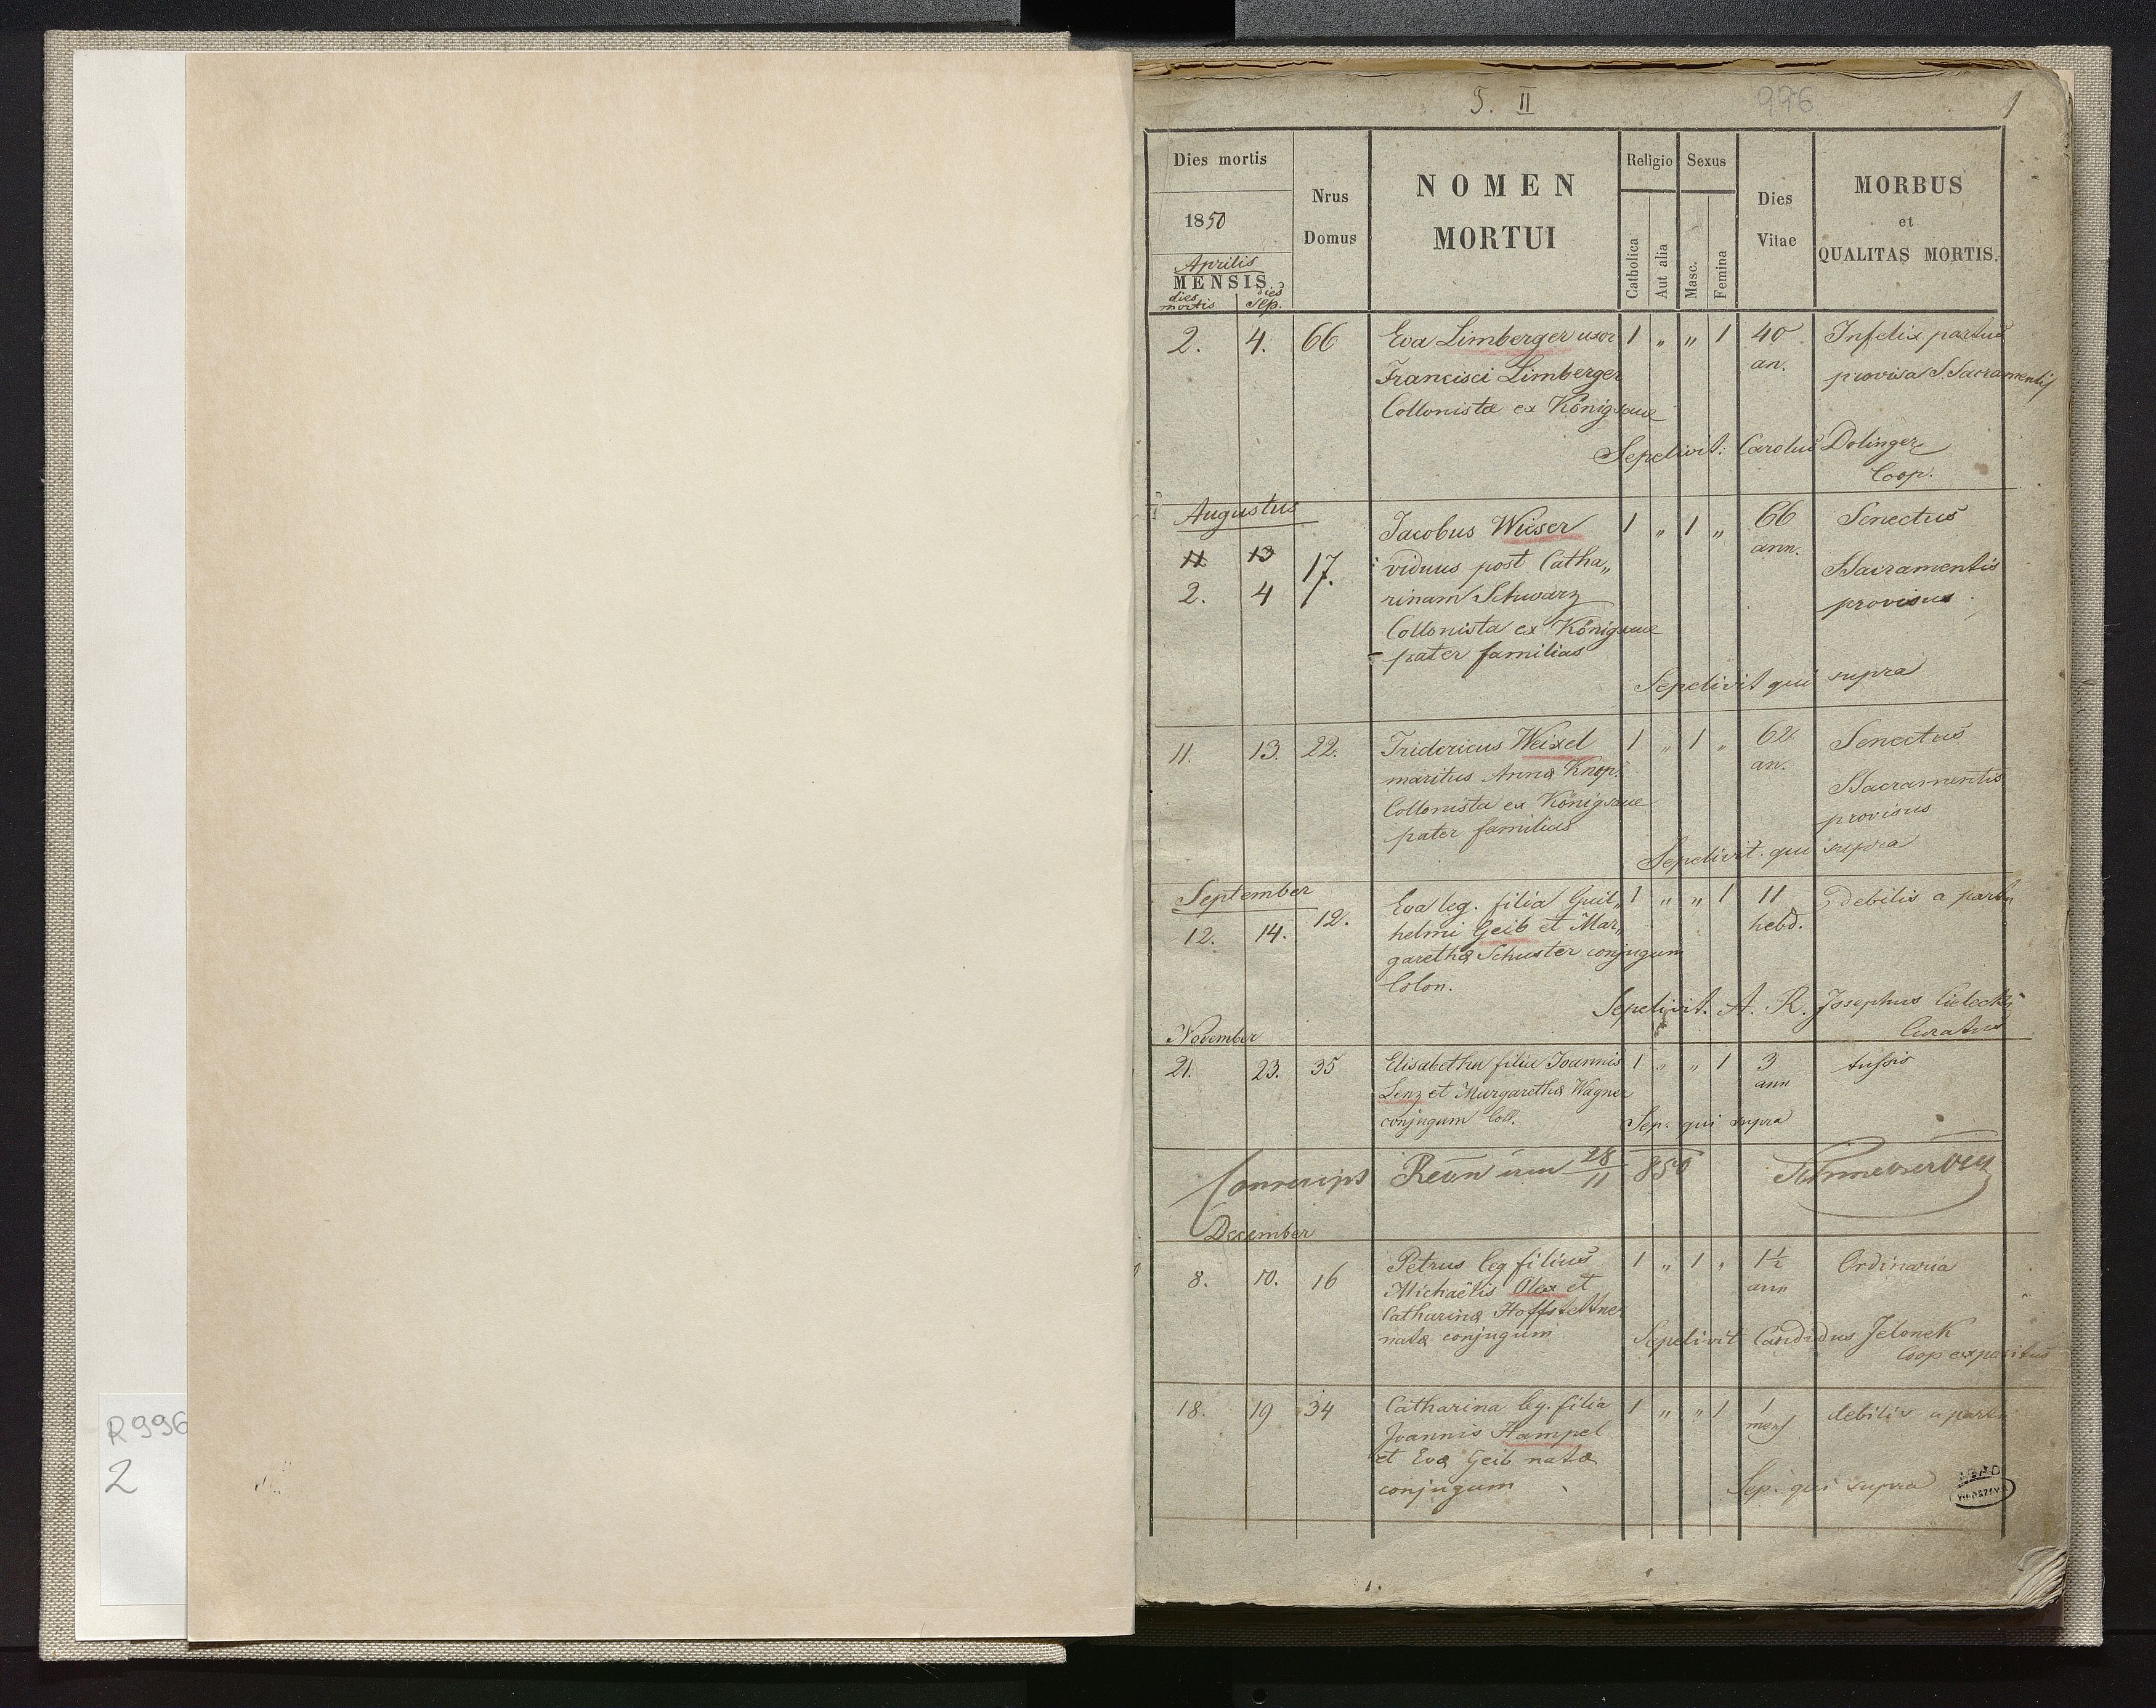 R996
2
5. II
996
1
Dies mortis
1850
Aprilis
MENSIS
dies mortis
dies sep.
Nrus
Domus
NOMEN
MORTUI
Religio
Catholica
Aut alia
Sexus
Masc.
Femina
Dies
Vitae
MORBUS
et
QUALITAS MORTIS.
2. 4. 66 Eva Limberger uxor 1 „ „ 1 40 Infelix partus
an. provisa S. Sacramentis
Francisci Limberger
Collonista ex Königsaue
Sepelivit: Carolus Dolinger
Coop.
Augustus
Jacobus Wieser 1 „ 1 „ 66 Senectus
11 13 17. viduus post Catha„ ann. SSacramentis
2. 4 rinam Schwarz provisus
Collonista ex Königsaue
pater familias
Sepelivit qui supra
11. 13. 22. Fridericus Weixel 1 „ 1 „ 62 Senectus
maritus Annæ Knop. an. SSacramentis
Collonista ex Königsaue provisus
pater familias
Sepelivit. qui supra
September
Eva leg. filia Guil„ 1 „ „ 1 11 debilis a partu
12. 14. 12. helmi Geib et Mar„ hebd.
garethæ Schuster conjugum
Colon.
Sepelivit. A. R. Josephus Cielecki
Curatus
November
21. 23. 35 Elisabetha filia Joannis 1 „ „ 1 3 tussis
Lenz et Margarethæ Wagner ann
conjugum Coll.
Sep. qui supra
28/11 850
December
8. 10. 16 Petrus leg filius 1 „ 1 „ 1½ Ordinaria
Michaëlis Olex et ann
Catharinæ Hoffstettner
natæ conjugum
Sepelivit Candidus Jelonek
Coop expositus
18. 19 34 Catharina leg. filia 1 „ „ 1 1 debilis a partu
Joannis Hampel mens
et Evæ Geib natæ
conjugum
Sep. qui supra